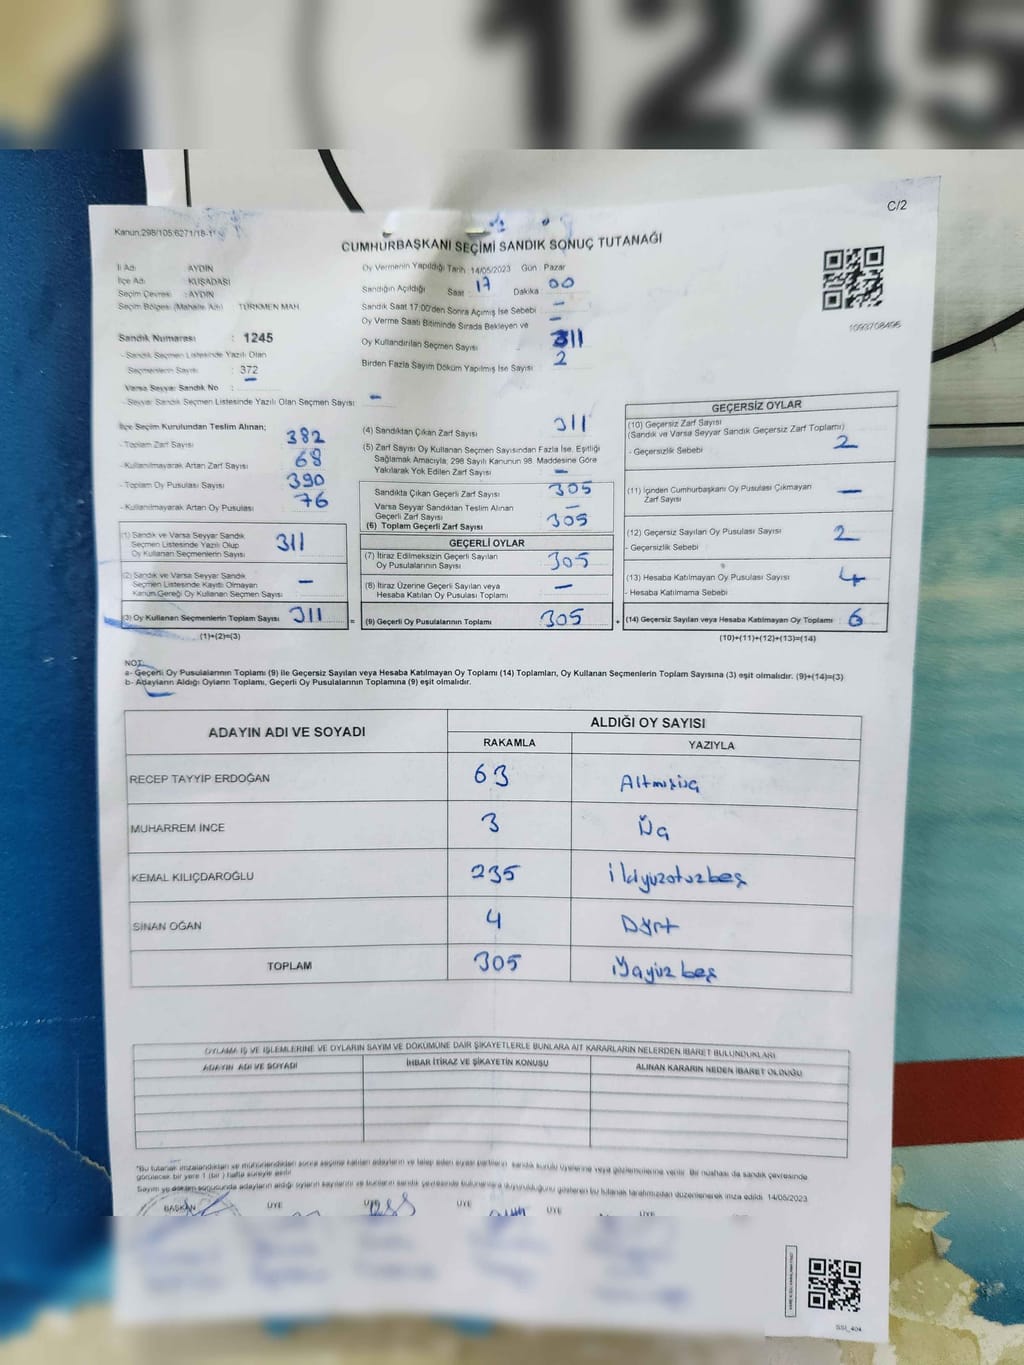 1245
C/2
Kanun.298/105.6271/18-1
CUMHURBAŞKANI SEÇİMİ SANDIK SONUÇ TUTANAĞI
İl Adı : AYDIN
İlçe Adı : KUŞADASI
Seçim Çevresi : AYDIN
Seçim Bölgesi (Mahalle Adı) TÜRKMEN MAH
Oy Vermenin Yapıldığı Tarih 14/05/2023 Gün : Pazar
Sandığın Açıldığı Saat : 17 Dakika : 00
Sandık Saat 17:00'den Sonra Açımış İse Sebebi : –
Oy Verme Saati Bitiminde Sırada Bekleyen ve : –
Oy Kullandırılan Seçmen Sayısı 311
Birden Fazla Sayım Döküm Yapılmış İse Sayısı : 2
1093708496
Sandık Numarası : 1245
- Sandık Seçmen Listesinde Yazılı Olan
Seçmenlerin Sayısı : 372
Varsa Seyyar Sandık No : –
- Seyyar Sandık Seçmen Listesinde Yazılı Olan Seçmen Sayısı : –
İlçe Seçim Kurulundan Teslim Alınan;
- Toplam Zarf Sayısı 382
- Kullanılmayarak Artan Zarf Sayısı 68
- Toplam Oy Pusulası Sayısı 390
- Kullanılmayarak Artan Oy Pusulası 76
(1) Sandık ve Varsa Seyyar Sandık
Seçmen Listesinde Yazılı Olup
Oy Kullanan Seçmenlerin Sayısı 311
(2) Sandık ve Varsa Seyyar Sandık
Seçmen Listesinde Kayıtlı Olmayan
Kanun Gereği Oy Kullanan Seçmen Sayısı –
(3) Oy Kullanan Seçmenlerin Toplam Sayısı 311
(1)+(2)=(3)
(4) Sandıktan Çıkan Zarf Sayısı 311
(5) Zarf Sayısı Oy Kullanan Seçmen Sayısından Fazla İse, Eşitliği
Sağlamak Amacıyla, 298 Sayılı Kanunun 98. Maddesine Göre
Yakılarak Yok Edilen Zarf Sayısı –
Sandıkta Çıkan Geçerli Zarf Sayısı 305
Varsa Seyyar Sandıktan Teslim Alınan
Geçerli Zarf Sayısı –
(6) Toplam Geçerli Zarf Sayısı 305
GEÇERLİ OYLAR
(7) İtiraz Edilmeksizin Geçerli Sayılan
Oy Pusulalarının Sayısı 305
(8) İtiraz Üzerine Geçerli Sayılan veya
Hesaba Katılan Oy Pusulası Toplamı –
= (9) Geçerli Oy Pusulalarının Toplamı 305 +
GEÇERSİZ OYLAR
(10) Geçersiz Zarf Sayısı
(Sandık ve Varsa Seyyar Sandık Geçersiz Zarf Toplamı) 2
- Geçersizlik Sebebi
(11) İçinden Cumhurbaşkanı Oy Pusulası Çıkmayan
Zarf Sayısı –
(12) Geçersiz Sayılan Oy Pusulası Sayısı 2
- Geçersizlik Sebebi
(13) Hesaba Katılmayan Oy Pusulası Sayısı 4
- Hesaba Katılmama Sebebi
(14) Geçersiz Sayılan veya Hesaba Katılmayan Oy Toplamı 6
(10)+(11)+(12)+(13)=(14)
NOT:
a- Geçerli Oy Pusulalarının Toplamı (9) ile Geçersiz Sayılan veya Hesaba Katılmayan Oy Toplamı (14) Toplamları, Oy Kullanan Seçmenlerin Toplam Sayısına (3) eşit olmalıdır. (9)+(14)=(3)
b- Adayların Aldığı Oyların Toplamı, Geçerli Oy Pusulalarının Toplamına (9) eşit olmalıdır.
ADAYIN ADI VE SOYADI ALDIĞI OY SAYISI
RAKAMLA YAZIYLA
RECEP TAYYİP ERDOĞAN 63 Altmışüç
MUHARREM İNCE 3 Üç
KEMAL KILIÇDAROĞLU 235 ikiyüzotuzbeş
SİNAN OĞAN 4 Dört
TOPLAM 305 Üçyüzbeş
OYLAMA İŞ VE İŞLEMLERİNE VE OYLARIN SAYIM VE DÖKÜMÜNE DAİR ŞİKAYETLERLE BUNLARA AİT KARARLARIN NELERDEN İBARET BULUNDUKLARI
ADAYIN ADI VE SOYADI İHBAR İTİRAZ VE ŞİKAYETİN KONUSU ALINAN KARARIN NEDEN İBARET OLDUĞU
*Bu tutanak imzalandıktan ve mühürlendikten sonra seçime katılan adayların ve talep eden siyasi partilerin sandık kurulu üyelerine veya gözlemcilerine verilir. Bir nüshası da sandık çevresinde
görülecek bir yere 1 (bir) hafta süreyle asılır
Sayım ve döküm sonucunda adayların aldığı oyların sayılarını ve bunların sandık çevresinde bulunanlara duyurulduğunu gösteren bu tutanak tarafımızdan düzenlenerek imza edildi. 14/05/2023
BAŞKAN ÜYE ÜYE ÜYE ÜYE
SSI_404